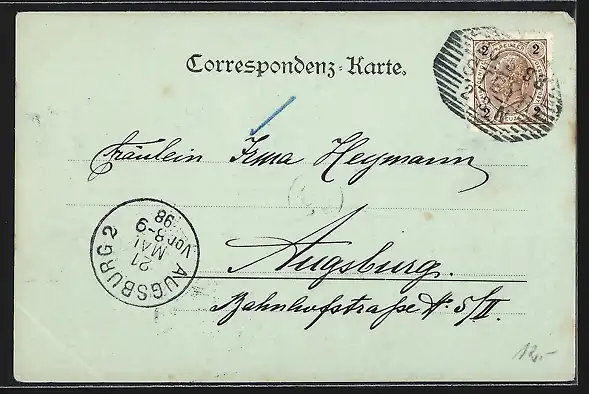 Correspondenz-Karte.
2 2
2 2
Fräulein Irma Heymann
Augsburg.
Bahnhofstraße № 5/II.
AUGSBURG 2
21
MAI
Vor. 8-9
98
12,-